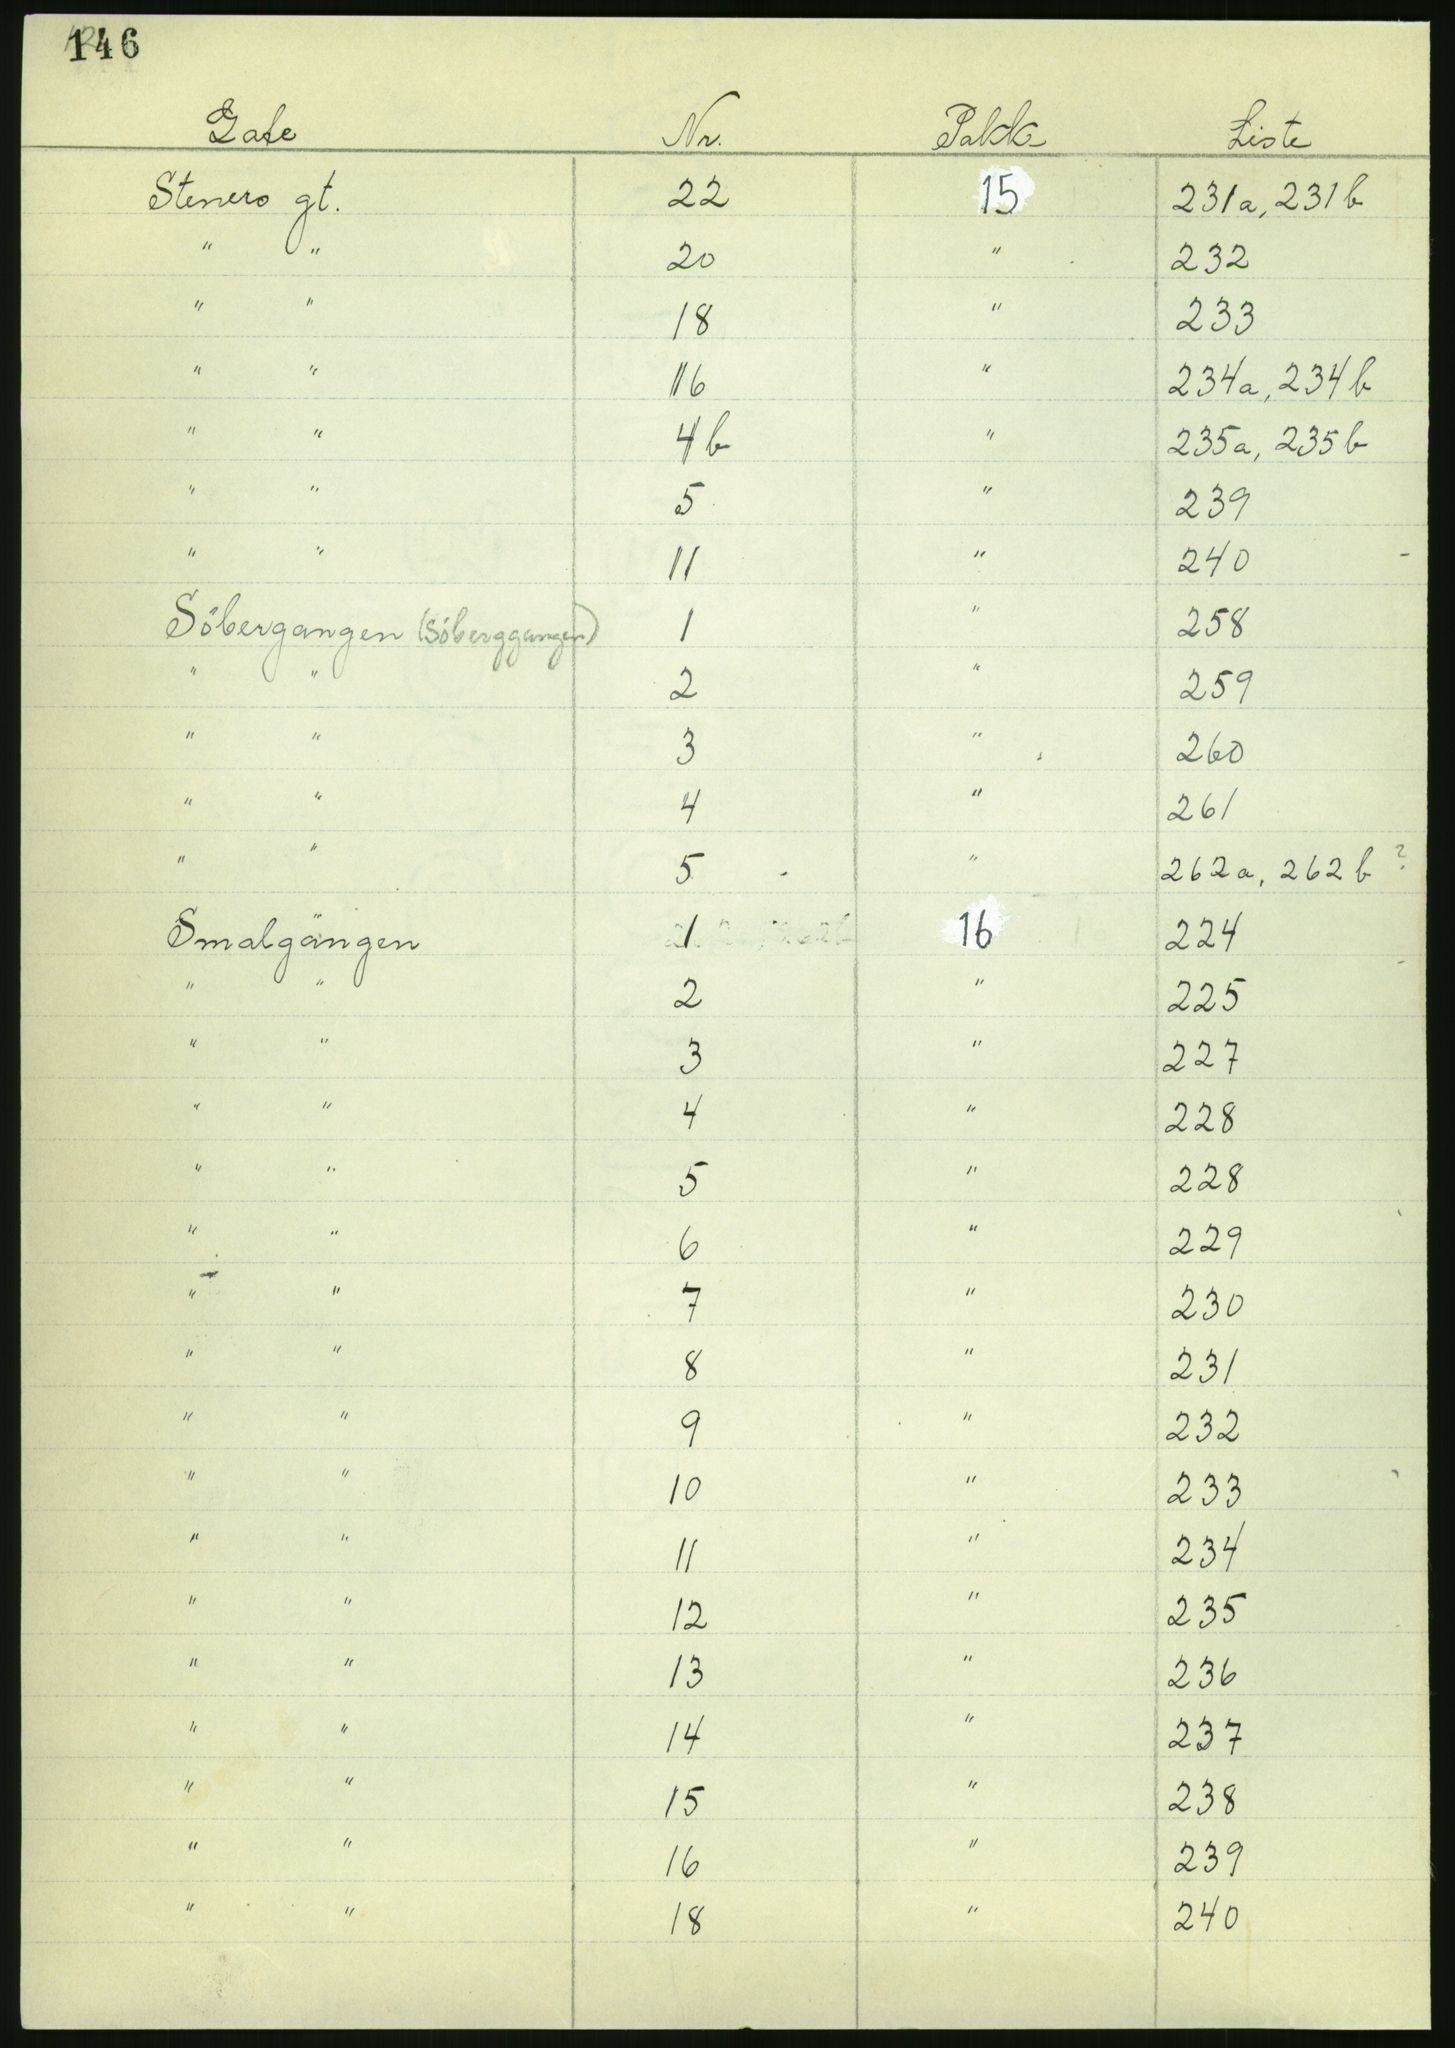 146
Gate Nr. Pakk Liste
Steners gt. 22 15 231a, 231b
" " 20 " 232
" " 18 " 233
" " 16 " 234a, 234b
" " 4b " 235a, 235b
" " 5 " 239
" " 11 " 240
Söbergangen (Söberggangen) 1 " 258
" " 2 " 259
" " 3 " 260
" " 4 " 261
" " 5 " 262a, 262b ?
Smalgangen 1 16 224
" " 2 " 225
" " 3 " 227
" " 4 " 228
" " 5 " 228
" " 6 " 229
" " 7 " 230
" " 8 " 231
" " 9 " 232
" " 10 " 233
" " 11 " 234
" " 12 " 235
" " 13 " 236
" " 14 " 237
" " 15 " 238
" " 16 " 239
" " 18 " 240